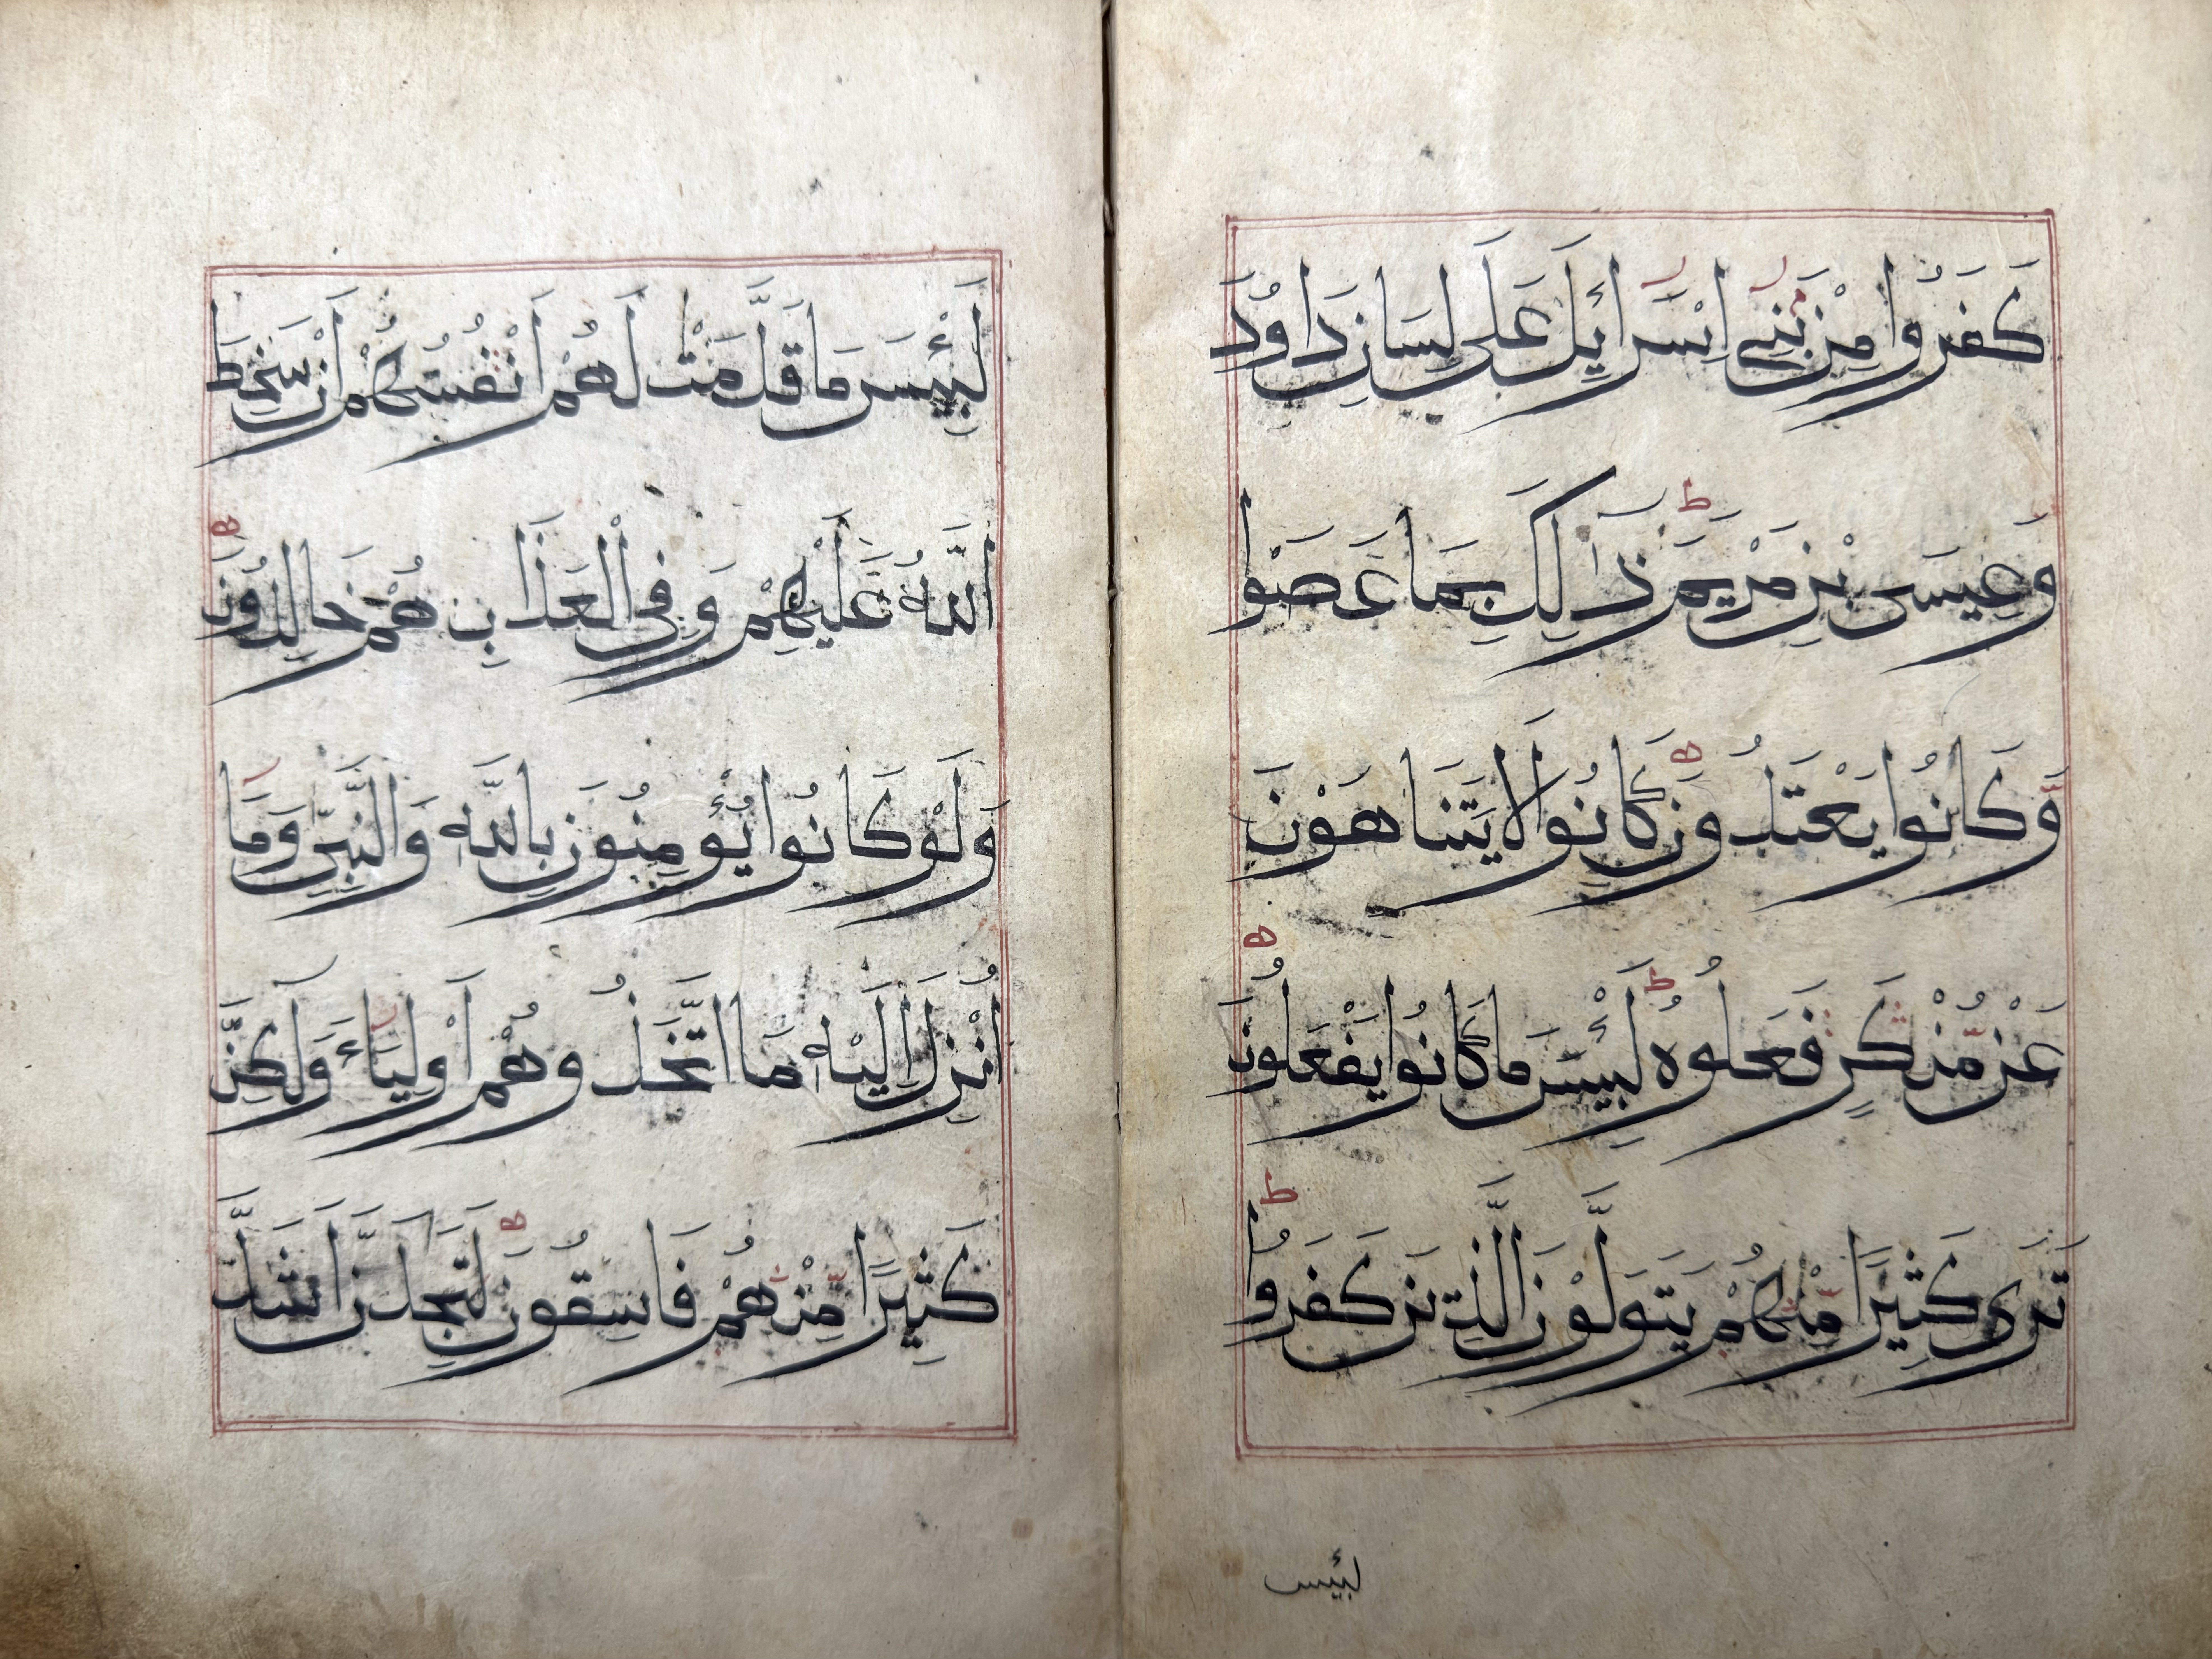 كَفَرُوا مِنْ بَنِي اِسْرَائِلَ عَلَى لِسَانِ دَاوُدَ
وَعِيسَى بْنِ مَرْيَمَ ط ذَالِكَ بِمَا عَصَوْا
وَّكَانُوا يَعْتَدُونَ ه كَانُوا لَا يَتَنَاهَوْنَ
عَنْ مُّنْكَرٍ فَعَلُوهُ ط لَبِئْسَ مَا كَانُوا يَفْعَلُونَ ه
تَرَى كَثِيرًا مِّنْهُمْ يَتَوَلَّوْنَ الَّذِينَ كَفَرُوا ط
لبئيس
لَبِئْيسَ مَا قَدَّمَتْ لَهُمْ أَنْفُسُهُمْ أَنْ سَخِطَ
اَللَّهُ عَلَيْهِمْ وَفِي الْعَذَابِ هُمْ خَالِدُونَ ه
وَلَوْ كَانُوا يُؤْمِنُونَ بِاللَّهِ وَالنَّبِيِّ وَمَا
اُنْزِلَ اِلَيْهِ مَا اتَّخَذُوهُمْ أَوْلِيَاءَ وَلَكِنَّ
كَثِيرًا مِّنْهُمْ فَاسِقُونَ ه لَتَجِدَنَّ اَشَدَّ